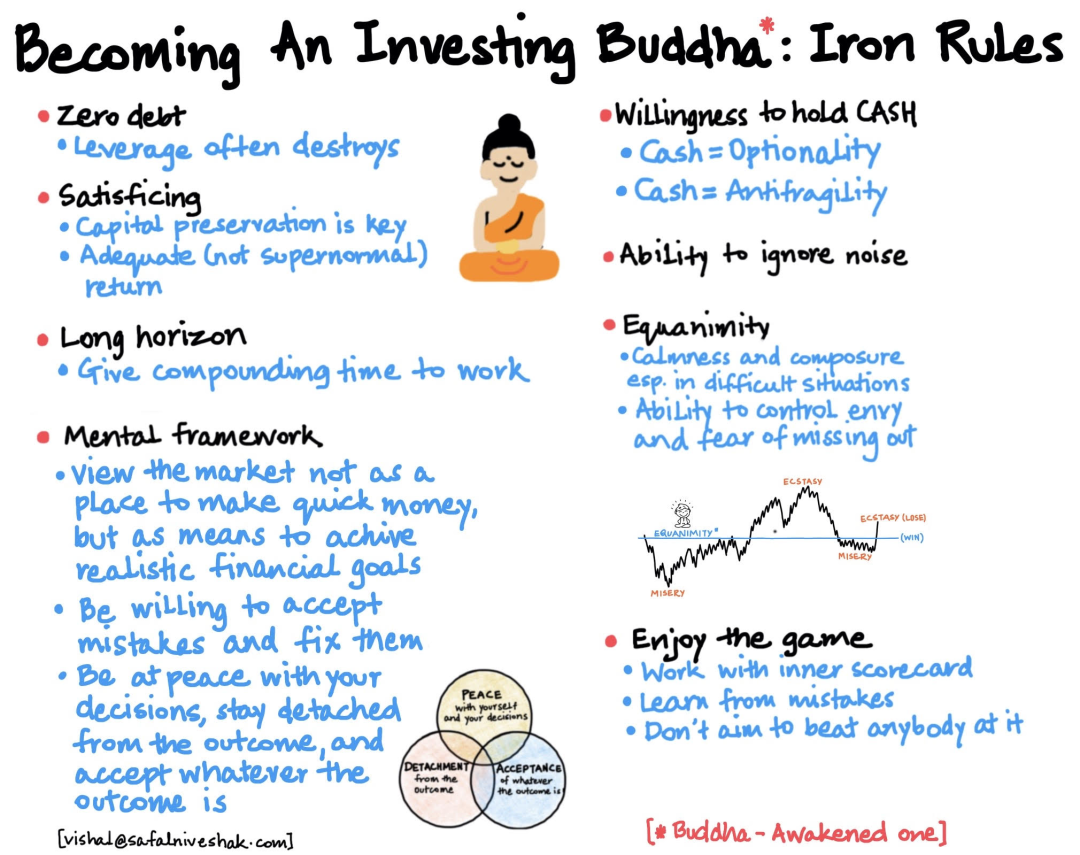 Becoming An Investing Buddha*: Iron Rules
• Zero debt
• Leverage often destroys
• Satisficing
• Capital preservation is key
• Adequate (not supernormal)
return
• Long horizon
• Give compounding time to work
• Mental framework
• View the market not as a
place to make quick money,
but as means to achive
realistic financial goals
• Be willing to accept
mistakes and fix them
• Be at peace with your
decisions, stay detached
from the outcome, and
accept whatever the
outcome is
PEACE
with yourself
and your decisions
DETACHMENT
from the
outcome
ACCEPTANCE
of whatever
the outcome is
[vishal@safalniveshak.com]
• Willingness to hold CASH
• Cash = Optionality
• Cash = Antifragility
• Ability to ignore noise
• Equanimity
• Calmness and composure
esp. in difficult situations
• Ability to control envy
and fear of missing out
ECSTASY
ECSTASY (LOSE)
EQUANIMITY*
(WIN)
MISERY
MISERY
• Enjoy the game
• Work with inner scorecard
• Learn from mistakes
• Don't aim to beat anybody at it
[* Buddha - Awakened one]